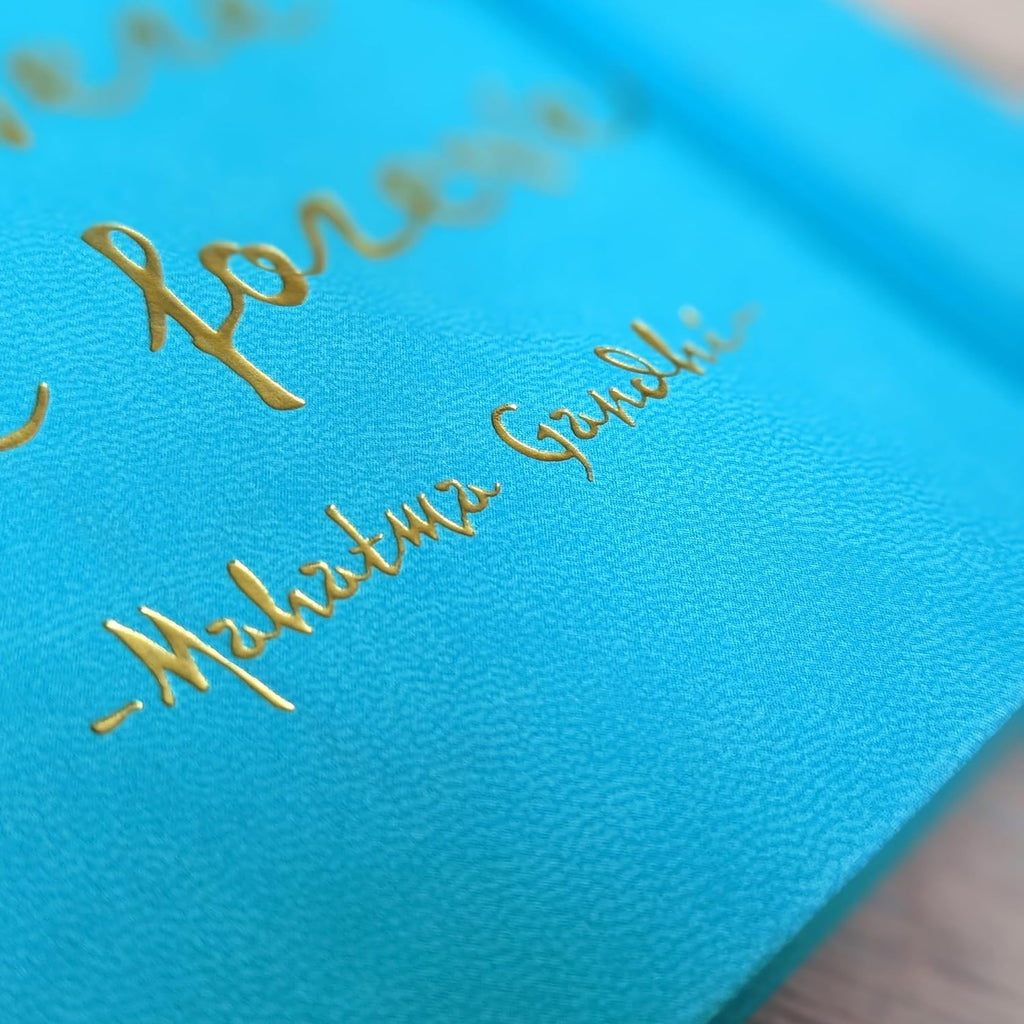 forever
- Mahatma Gandhi